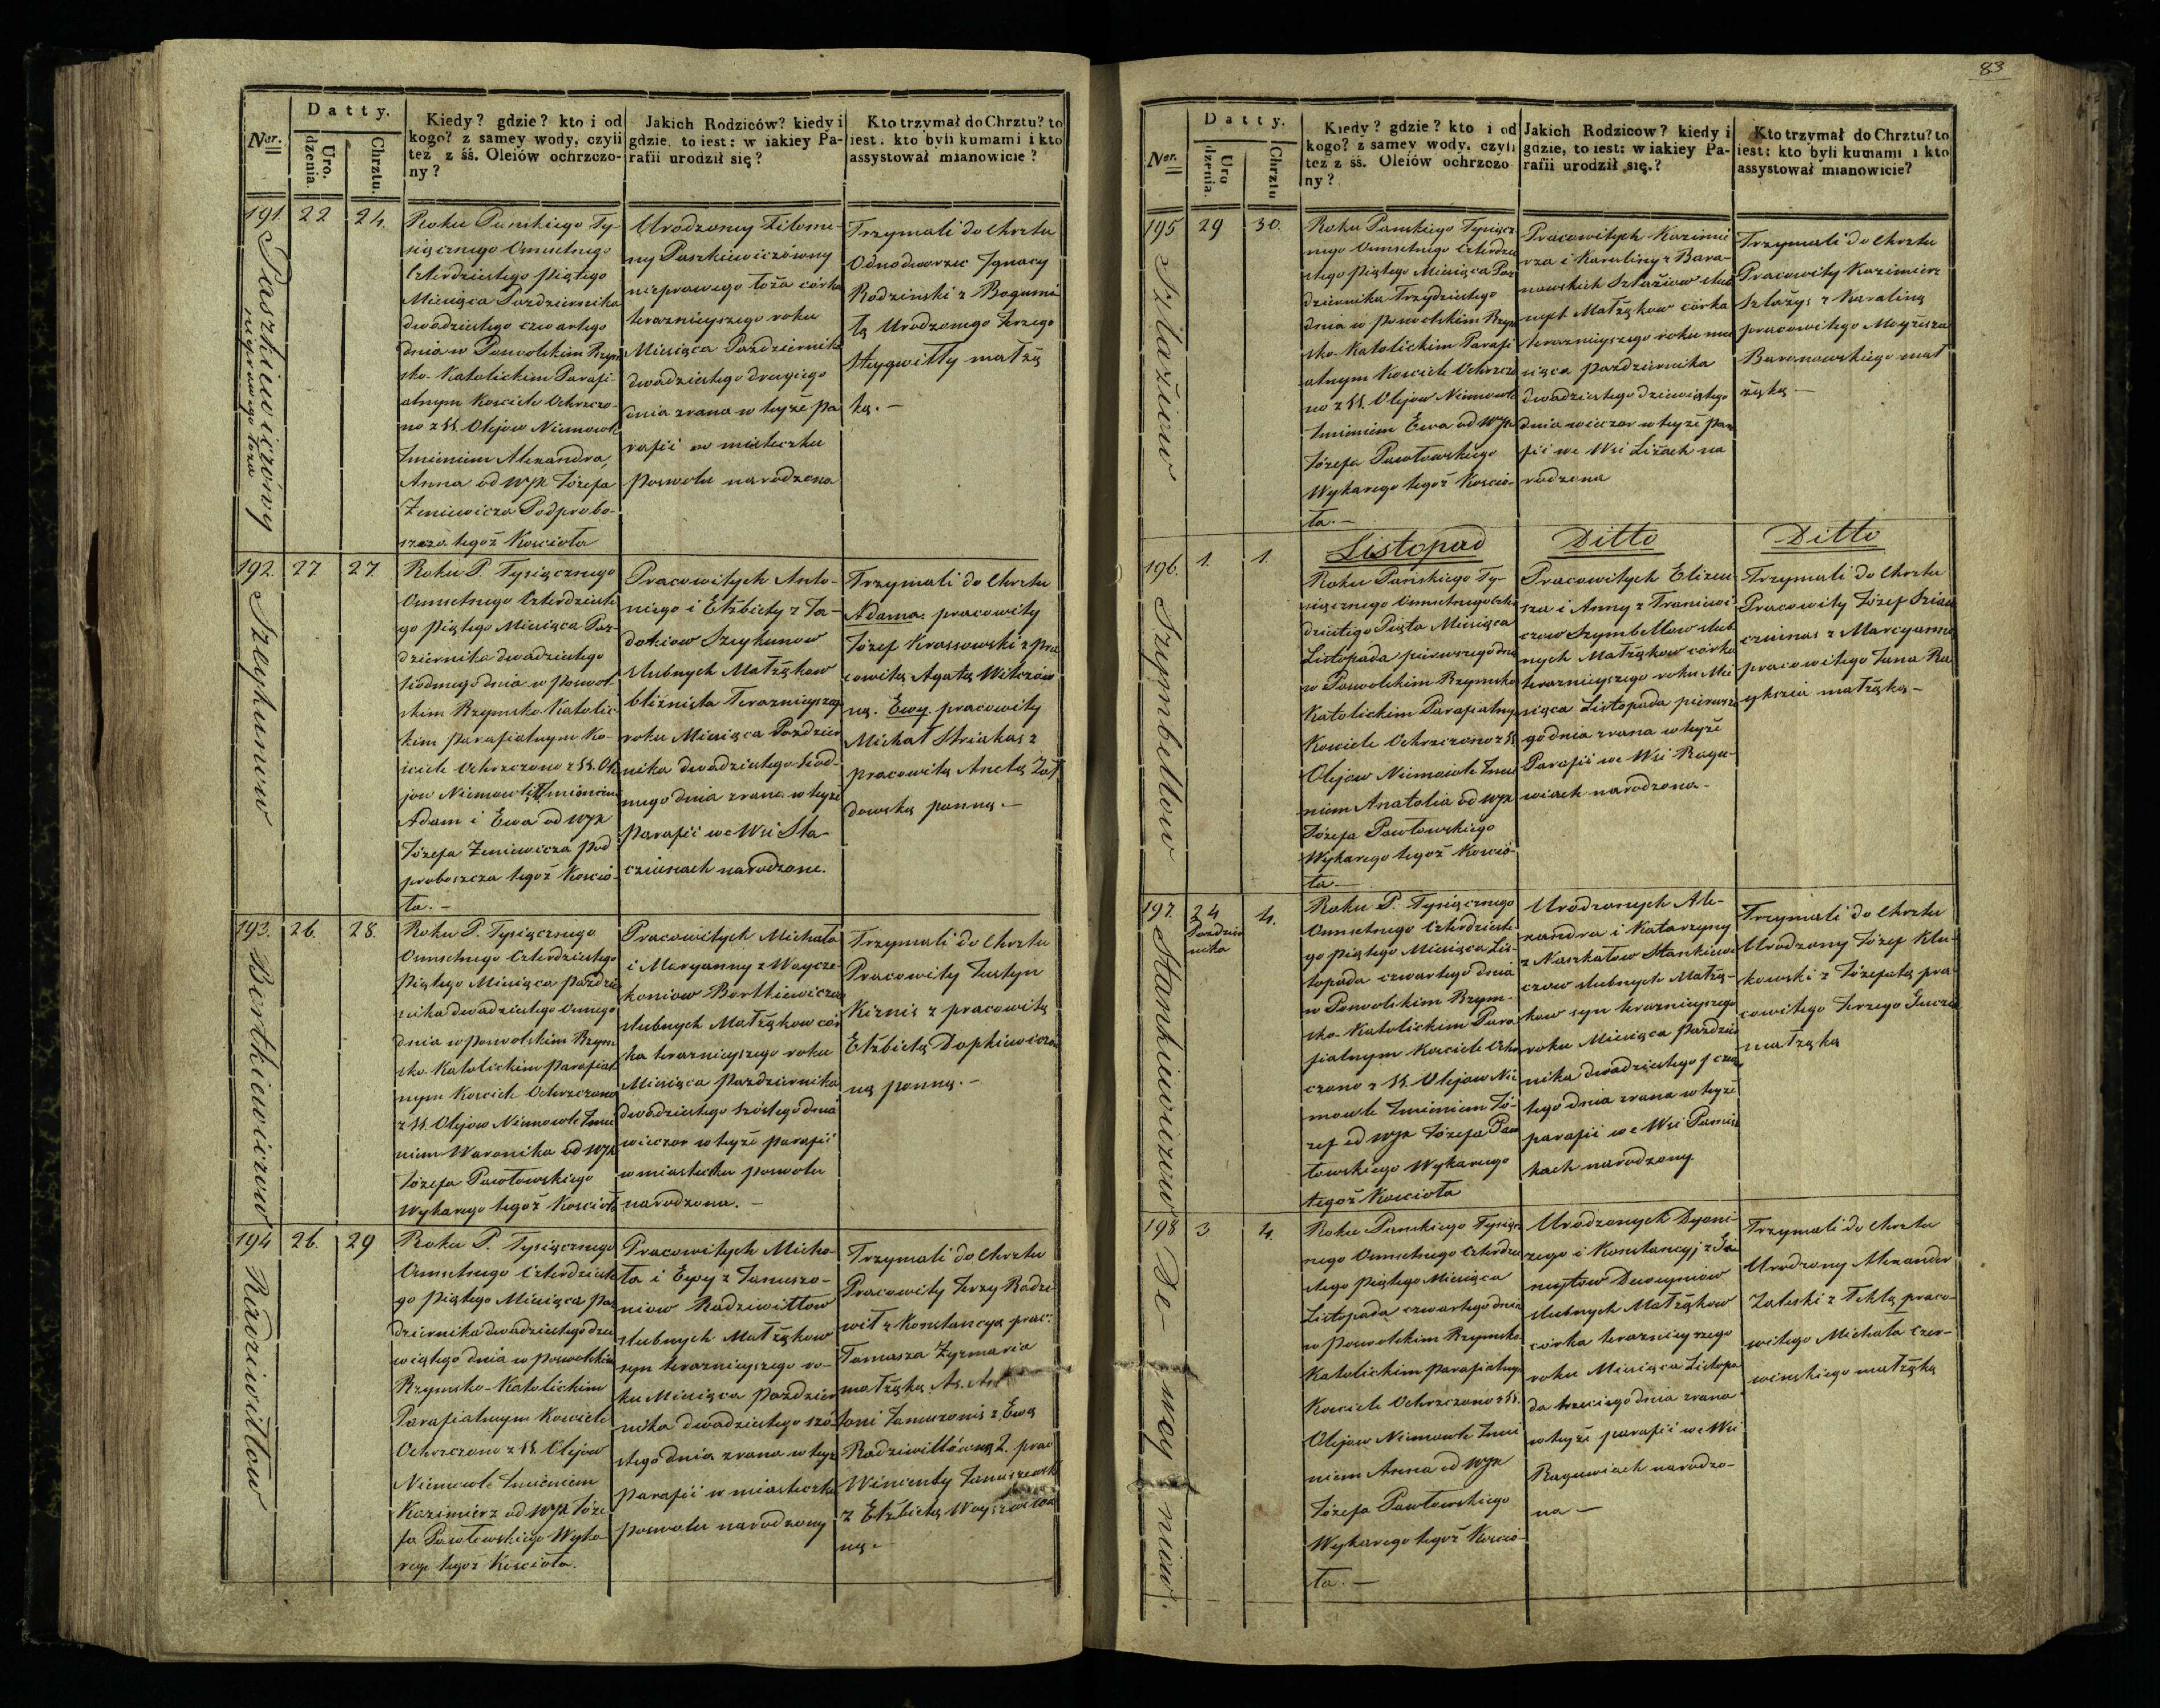 Datty.
Ner.
Uro.
dzenia.
Chrztu.
Kiedy? gdzie? kto i od
kogo? z samey wody, czyli
też z śś. Oleiów ochrzczo-
ny?
Jakich Rodziców? kiedy i
gdzie, to iest: w iakiey Pa-
rafii urodził się?
Kto trzymał do Chrztu? to
iest: kto byli kumami i kto
assystował mianowicie?
191.
Paszkiewiczówny
nieprawego łoża
22
24.
Roku Pańskiego Ty-
siącznego Osmsetnego
Czterdziestego piątego
Miesiąca Pazdziernika
dwadziestego czwartego
dnia w Poswolskim Rzym
sko-Katolickim Parafi-
alnym Kosciele Ochrzczo-
no z SS. Olejow Niemowle
Imieniem Alexandra,
Anna od WJX Józefa
Żniewicza Podprobo-
szcza tegoż Koscioła
Urodzoney Filome-
ny Paszkiewiczówny
nieprawego łoża córka
teraznieyszego roku
Miesiąca Pazdziernika
dwadziestego drugiego
dnia zrana w teyże pa
rafii w miasteczku
Poswolu narodzona
Trzymali do Chrztu
Odnodworzec Ignacy
Rodzinski z Bogumi
łą Urodzonego Jerzego
Steygwiłły małżą
ką.-
192.
Szeykunow
27.
27.
Roku P. Tysiącznego
Osmsetnego Czterdzieste
go piątego Miesiąca Paz-
dziernika dwadziestego
siodmego dnia w Poswol-
skim Rzymsko Katolic-
kim parafialnym Ko-
sciele Ochrzczono z SS. Ole
jow Niemowlęta Imionami
Adam i Ewa od WJX
Józefa Żniewicza Pod
proboszcza tegoż Koscio-
ła.-
Pracowitych Anto-
niego i Elżbiety z Ja-
dokiow Szeykunow
slubnych Małżąkow
bliznięta Teraznieyszego
roku Miesiąca Pazdzier
nika dwadziestego siod-
mego dnia zrana w teyże
parafii we Wsi Sta-
czunach narodzone.
Trzymali do Chrztu
Adama. pracowity
Józef Krassowski z pra
cowitą Agatą Witczów
ną. Ewy. pracowity
Michał Striakas z
pracowitą Anetą Żoł
dowską panną.-
193.
Bortkiewiczow
26.
28.
Roku P. Tysiącznego
Osmsetnego Czterdziestego
Piątego Miesiąca Pazdzier
nika dwadziestego Osmego
dnia w Poswolskim Rzym
sko-Katolickim Parafial
nym Kosciele Ochrzczono
z SS. Olejow Niemowle Imie
niem Waronika od WJX
Józefa Pawłowskiego
Wykarego tegoż Kościoła
Pracowitych Michała
i Maryanny z Woycze-
koniow Bortkiewiczow
slubnych Małżąkow cór
ka teraznieyszego roku
Miesiąca Pazdziernika
dwadziestego szóstego dnia
wieczor w teyże parafii
w miasteczku Poswolu
narodzona.-
Trzymali do Chrztu
Pracowity Justyn
Kirnis z pracowitą
Elżbietą Dopkiewiczow
ną panną.-
194
Radziwiłłow
26.
29
Roku P. Tysiącznego
Osmsetnego Czterdzieste
go piątego Miesiąca paz
dziernika dwadziestego dzie
wiątego dnia w Poswolskim
Rzymsko-Katolickim
Parafialnym Kosciele
Ochrzczono z SS. Olejow
Niemowle Imieniem
Kazimierz od WJX Józe
fa Pawłowskiego Wyka-
rego tegoż Kościoła.
Pracowitych Micha-
ła i Ewy z Januszo-
niow Radziwiłłow
slubnych Małżąkow
syn teraznieyszego ro-
ku Miesiąca Pazdzier
nika dwadziestego szó
stego dnia zrana w teyż
parafii w miasteczku
Poswolu narodzony
Trzymali do Chrztu
Pracowity Jerzy Radzi
wił z Konstancyą prac:
Tomasza Żyzmaria
małżąką As.
toni Januszonis z Ewą
Radziwiłłówną 2. prac
Wincenty Januszewsk
z Elżbietą
ną.-
83
Datty.
Ner.
Uro
dzenia.
Chrztu
Kiedy? gdzie? kto i od
kogo? z samey wody, czyli
też z śś. Oleiów ochrzczo
ny?
Jakich Rodziców? kiedy i
gdzie, to iest: w iakiey Pa-
rafii urodził się.?
Kto trzymał do Chrztu? to
iest: kto byli kumami i kto
assystował mianowicie?
195
Szłażiow
29
30.
Roku Pańskiego Tysiącz
nego Osmsetnego Czterdzie
stego piątego Miesiąca Paz
dziernika Trzydziestego
dnia w Poswolskim Rzym
sko-Katolickim Parafi
alnym Kosciele Ochrzczo
no z SS. Olejow Niemowle
Imieniem Ewa od WJX
Józefa Pawłowskiego
Wykarego tegoż Koscio-
ła.-
Pracowitych Kazimie
rza i Karoliny z Bara-
nowskich Szłażiow slub
nych Małżąkow córka
teraznieyszego roku mie
siąca Pazdziernika
dwadziestego dziewiątego
dnia wieczor w teyże para
fii we Wsi Liżach na
rodzona
Trzymali do Chrztu
Pracowity Kazimierz
Szłażys z Karaliną
pracowitego Moyżesza
Baranowskiego mał
żąką-
Listopad
Ditto
Ditto
196.
Szymbellow
1.
1.
Roku Pańskiego Ty-
siącznego Osmsetnego Czter
dziestego Piąto Miesiąca
Listopada pierwszego dnia
w Poswolskim Rzymsko
Katolickim Parafialnym
Kosciele Ochrzczono z SS.
Olejow Niemowle Imie
niem Anatolia od WJX
Józefa Pawłowskiego
Wykarego tegoż Koscio-
ła-
Pracowitych Elizeu
sza i Anny z Traniewi-
czow Szymbellow slub
nych Małżąkow córka
teraznieyszego roku Mie
siąca Listopada pierwsze
go dnia zrana w teyże
Parafii we Wsi Ragu-
wiach narodzona-
Trzymali do Chrztu
Pracowity Józef
czunas z Marcyanną
pracowitego Jana Ra
ykszia małżąką-
197.
Stankiewiczow
24
Pazdzier
nika
4.
Roku P. Tysiącznego
Osmsetnego Czterdzieste
go piątego Miesiąca Lis-
topada czwartego dnia
w Poswolskim Rzym-
sko-Katolickim Para
fialnym Kosciele Ochr
czono z SS. Olejow Nie
mowle Imieniem Jó-
zef od WJX Józefa Paw
łowskiego Wykarego
tegoż Kościoła
Urodzonych Ale-
xandra i Katarzyny
z Naszkatow Stankiewi
czow slubnych Małżą-
kow syn teraznieyszego
roku Miesiąca Pazdzier
nika dwadziestego czwar
tego dnia zrana w teyże
parafii we Wsi Pamisz
kach narodzony.
Trzymali do Chrztu
Urodzony Józef Klu-
kowski z Józefatą pra-
cowitego Jerzego
małżąką
198
Dewoyniow.
3.
4.
Roku Pańskiego Tysiącz
nego Osmsetnego Czterdzie
stego piątego Miesiąca
Listopada czwartego dnia
w Poswolskim Rzymsko
Katolickim parafialnym
Kosciele Ochrzczono z SS.
Olejow Niemowle Imie
niem Anna od WJX
Józefa Pawłowskiego
Wykarego tegoż Koscio-
ła.-
Urodzonych Dyoni-
zego i Konstancyi z
Dewoyniow
slubnych Małżąkow
córka teraznieyszego
roku Miesiąca Listopa
da trzeciego dnia zrana
w teyże parafii we Wsi
Raguwiach narodzo-
na-
Trzymali do Chrztu
Urodzony Alexander
Zaleski z Teklą praco-
witego Michała Czer-
winskiego małżąką